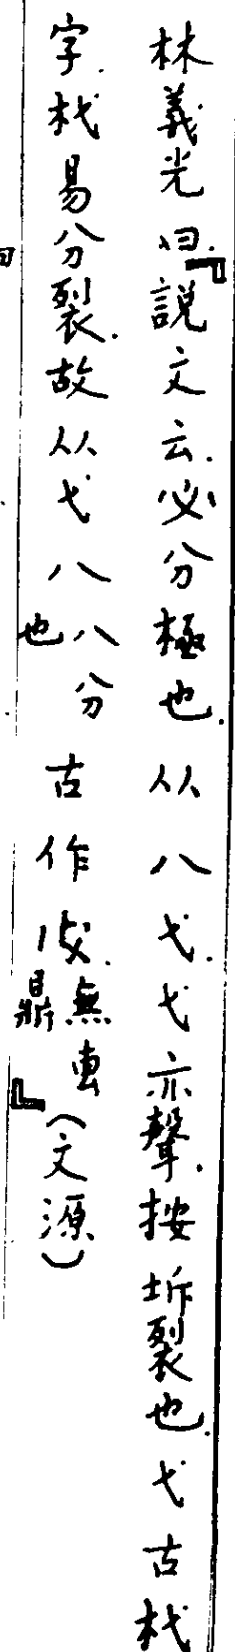 林義光曰『說文云.必分極也.从八弋.弋亦聲.按坼裂也.弋古杙
字.杙易分裂.故从弋八八分也古作𠈌.無叀鼎』(文源)